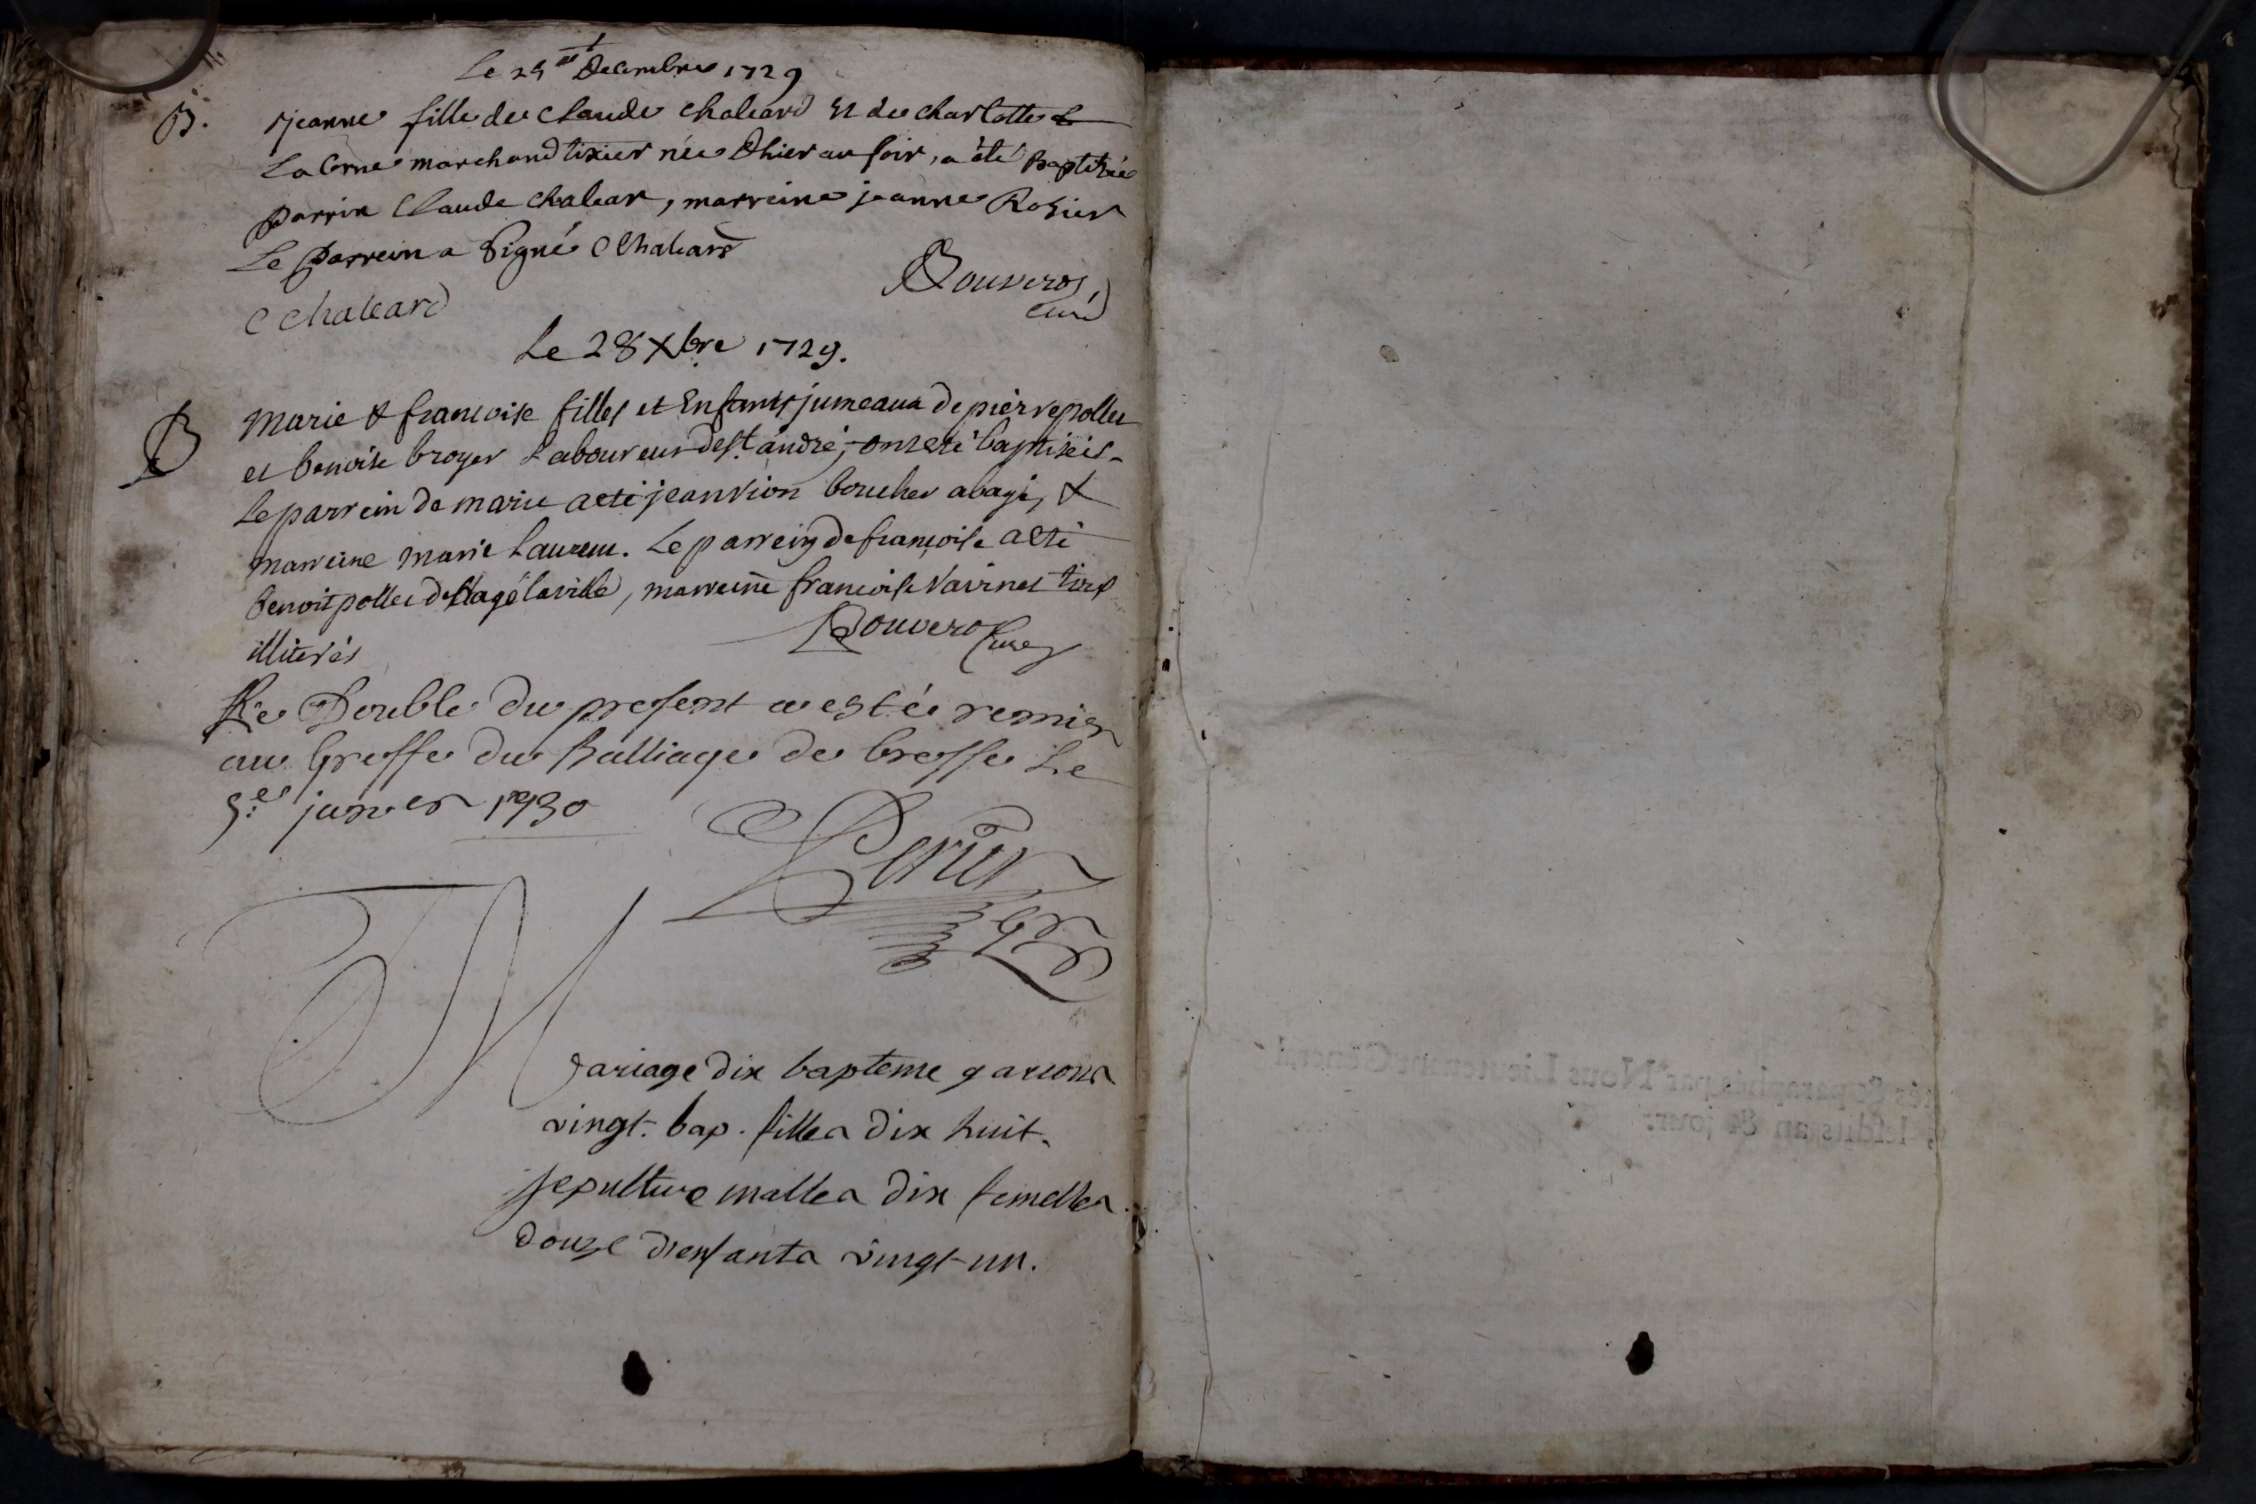 Le 25 Decembre 1729
B. jeanne fille de Claude Chaleard Et de Charlotte
La Corne marchand tixier née dhier au soir, a été Baptizée
parrin Claude chalear, marreine jeanne Rozier
Le parrein a Signé C Chaleard
C chaleard
Bouveros,
curé
Le 28 Xbre 1729.
B Marie & francoise filles et Enfants jumeaux de pierre pollet
et benoite broyer Laboureur de St. andré, ont eté baptisées.
Le parrein de marie a eté jean vion boucher a bagé, &
marreine marie Laurent. Le parrein de francoise a eté
benoit pollet de bagé la ville, marreine francoise Vavinet tous
illiterés
Bouveros Curé
Le Double du present a esté remis
au Greffe du Balliage de bresse Le
5e janvier 1730
Perier
Mariage dix bapteme garcons
vingt. bap. filles dix huit.
sepulture malles dix femelles
douze d'enfants vingt-un.
és & paraphés par Nous Lieutenant Général
lesdits an & jour: